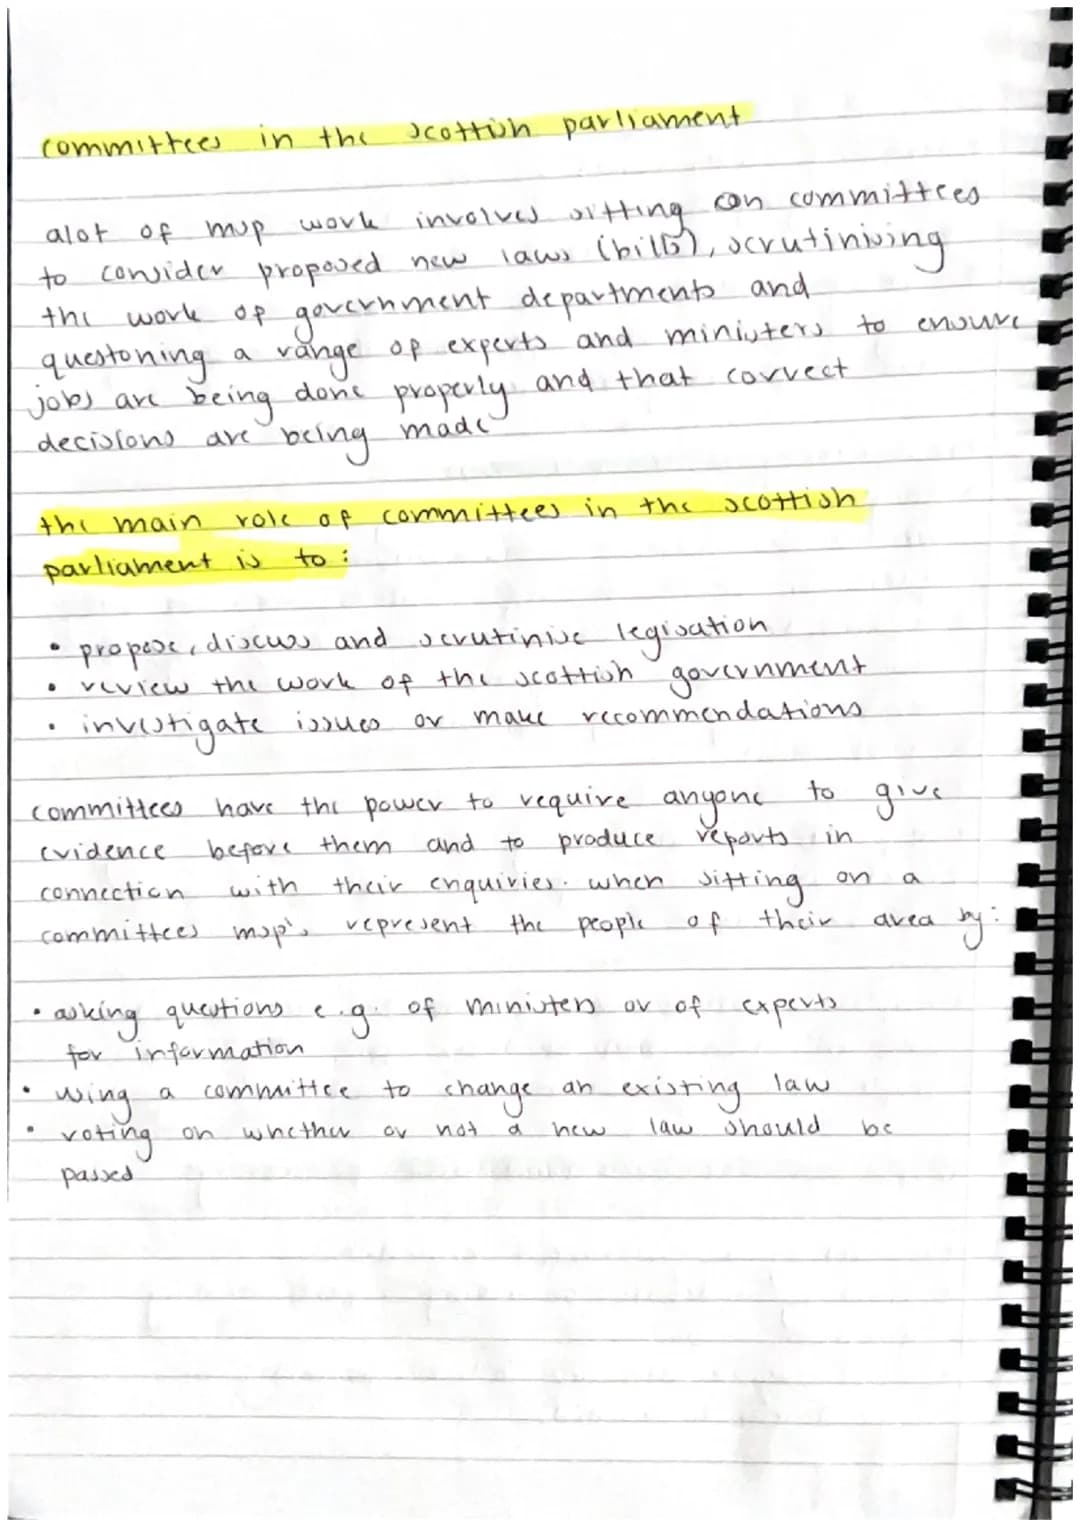 committees in the scottish parliament
alot of msp work involves sitting on committees
to consider proposed new laws (bills), scrutinising
the work of government departments and
questoning a range of experts and ministers to ensure
jobs are being done properly and that correct
decisions are being made
the main role of committees in the scottish
parliament is to:
• propose, discuss and scrutinise legisation
• review the work of the scottish government
• investigate issues or make recommendations
committees have the power to require anyone to give
evidence before them and to produce reports in
connection with their enquiries. when sitting on a
committees msp's represent the people of their area by:
• asking questions e.g. of ministers or of experts
for information
• using a committee to change an existing law
• voting on whether or not a new law should be
passed